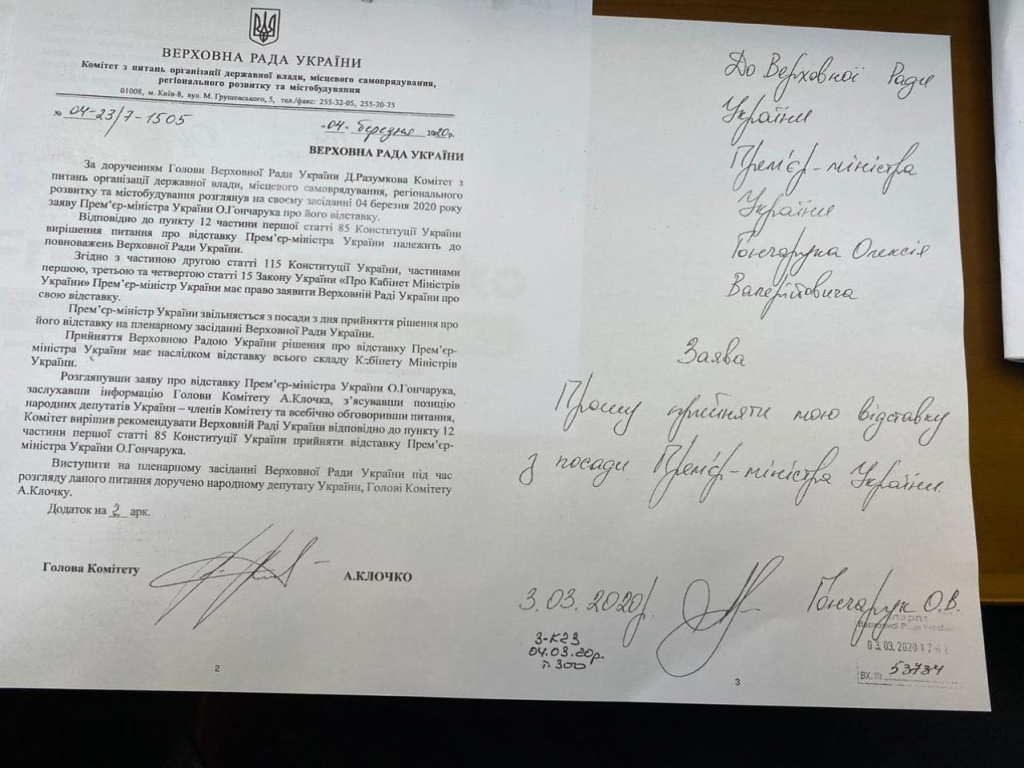 ВЕРХОВНА РАДА УКРАЇНИ
Комітет з питань організації державної влади, місцевого самоврядування,
регіонального розвитку та містобудування
01008, м. Київ-8, вул. М. Грушевського, 5, тел./факс: 255-32-05, 255-20-75
№ 04-23/7-1505 «04» березня 2020р.
ВЕРХОВНА РАДА УКРАЇНИ
За дорученням Голови Верховної Ради України Д.Разумкова Комітет з
питань організації державної влади, місцевого самоврядування, регіонального
розвитку та містобудування розглянув на своєму засіданні 04 березня 2020 року
заяву Прем’єр-міністра України О.Гончарука про його відставку.
Відповідно до пункту 12 частини першої статті 85 Конституції України
вирішення питання про відставку Прем’єр-міністра України належить до
повноважень Верховної Ради України.
Згідно з частиною другою статті 115 Конституції України, частинами
першою, третьою та четвертою статті 15 Закону України «Про Кабінет Міністрів
України» Прем’єр-міністр України має право заявити Верховній Раді України про
свою відставку.
Прем’єр-міністр України звільняється з посади з дня прийняття рішення про
його відставку на пленарному засіданні Верховної Ради України.
Прийняття Верховною Радою України рішення про відставку Прем’єр-
міністра України має наслідком відставку всього складу Кабінету Міністрів
України.
Розглянувши заяву про відставку Прем’єр-міністра України О.Гончарука,
заслухавши інформацію Голови Комітету А.Клочка, з’ясувавши позицію
народних депутатів України – членів Комітету та всебічно обговоривши питання,
Комітет вирішив рекомендувати Верховній Раді України відповідно до пункту 12
частини першої статті 85 Конституції України прийняти відставку Прем’єр-
міністра України О.Гончарука.
Виступити на пленарному засіданні Верховної Ради України під час
розгляду даного питання доручено народному депутату України, Голові Комітету
А.Клочку.
Додаток на 2 арк.
Голова Комітету А.КЛОЧКО
2
До Верховної Ради
України
Прем'єр-міністра
України
Гончарука Олексія
Валерійовича
Заява
Прошу прийняти мою відставку
з посади Прем'єр-міністра України.
3.03.2020р. Гончарук О.В.
З-К23
04.03.20р.
Верховної Ради
03.03.2020
ВХ. № 53734
3